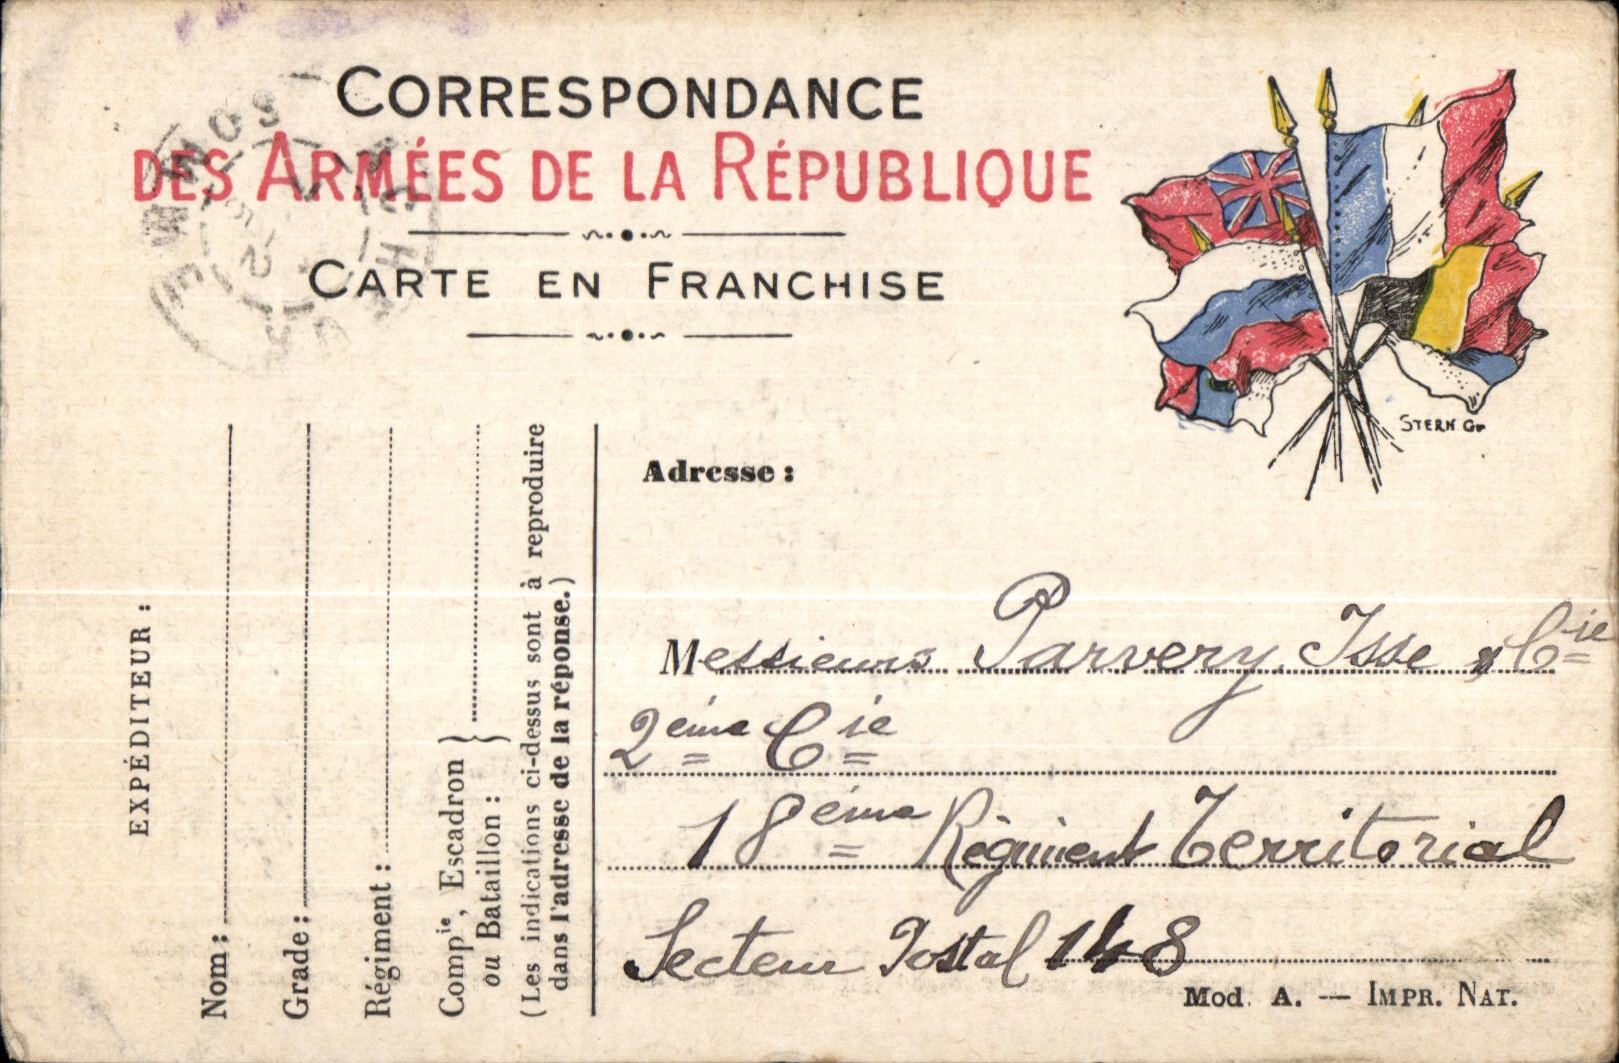 CORRESPONDANCE
DES ARMÉES DE LA RÉPUBLIQUE
CARTE EN FRANCHISE
SOMME
STERN Gr
EXPÉDITEUR :
Nom :
Grade :
Régiment :
Compie, Escadron
ou Bataillon :
(Les indications ci-dessus sont à reproduire
dans l'adresse de la réponse.)
Adresse :
Messieurs Parvery, Isse & Cie
2ème Cie
18ème Régiment Territorial
Secteur Postal 148
Mod. A. — IMPR. NAT.